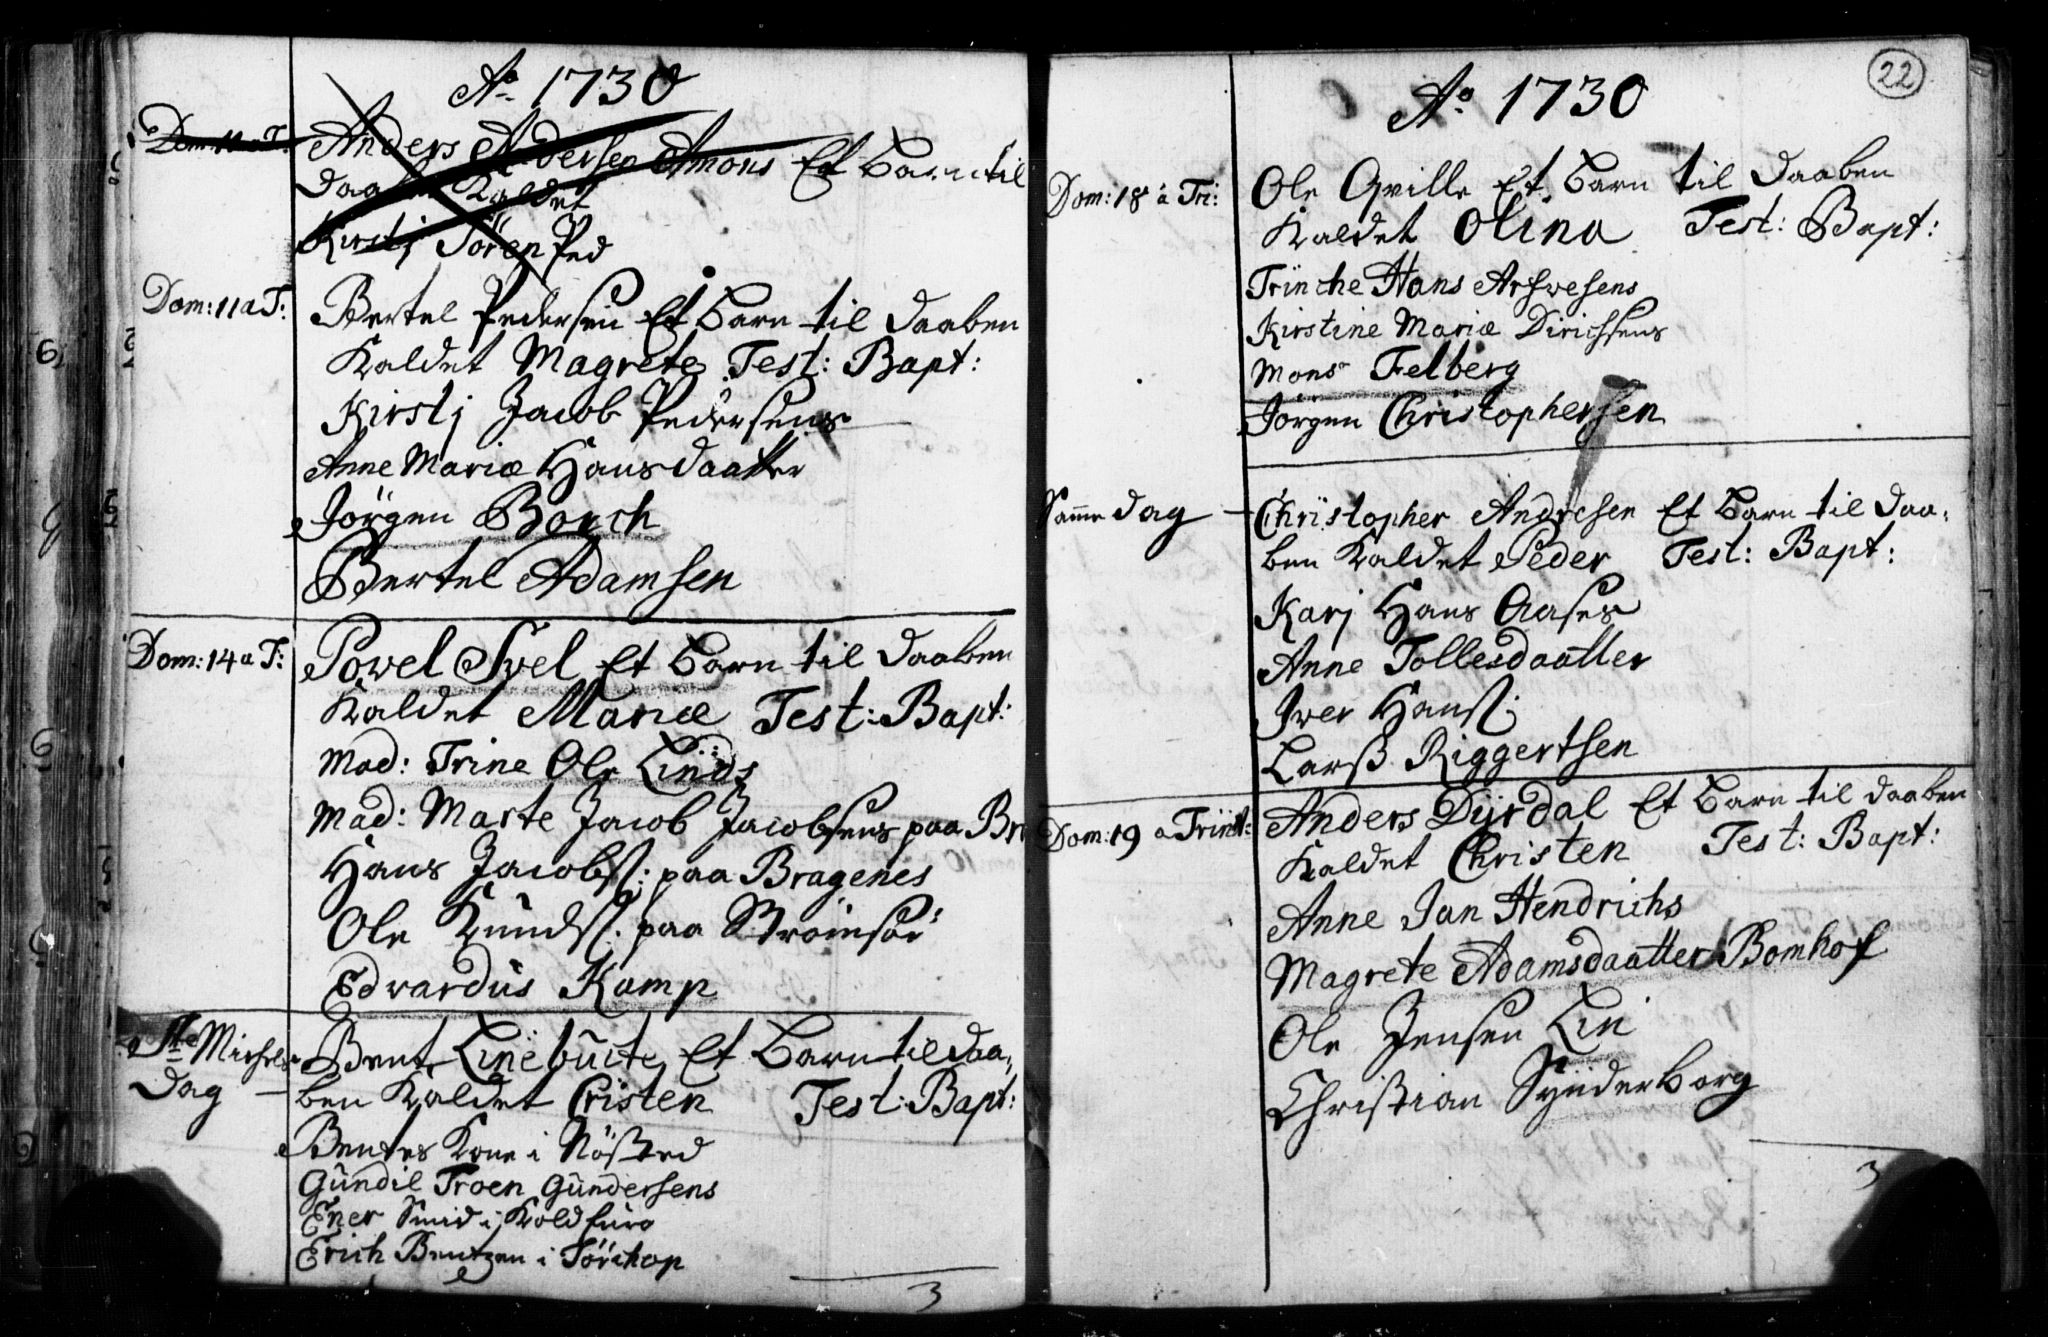 Ao 1730
Dom: 11 a T: Anders Andersen Amons Et Barn til
Daaben Kaldet
Kirstj Sören Ped
Dom: 11 a T: Bertel Pedersen Et Barn til Daaben
Kaldet Magrete Test: Bapt:
Kirstj Jacob Pedersens
Anne Mariæ Hansdaatter
Jörgen Borch
Bertel Adamsen
Dom: 14 a T: Powel Svel Et Barn til Daaben
Kaldet Mariæ Test: Bapt:
Mad: Trine Ole Linds
Mad: Marte Jacob Jacobsens paa Br
Hans Jacobs: paa Bragenes
Ole Knuds: paa Strömsöe
Edvardus Kamp
Ste Michels Bent Linebuite Et Barn til Daa,
Dag — ben Kaldet Cristen Test: Bapt:
Bentes Kone i Nösted
Gundil Troen Gundersens
Ener Smid i Koldfura
Erich Bentzen i Törchop
3
22
Ao 1730
Dom: 18 a Tri: Ole Qville Et Barn til Daaben
Kaldet Olina Test: Bapt:
Trinche Hans Arswesens
Kirstine Mariæ Dirichsens
Monsr Felberg
Jörgen Christophersen
Samme Dag — Christopher Andresen Et Barn til Daa,
ben Kaldet Peder Test: Bapt:
Karj Hans Aases
Anne Tollesdaatter
Iver Hans:
Larß Riggertsen
Dom: 19 a Trinit: Anders Dyrdal Et Barn til Daaben
Kaldet Christen Test: Bapt:
Anne Jan Hendrichs
Magrete Adamsdaatter Bomhof
Ole Jensen Lin
Christian Synderborg
3